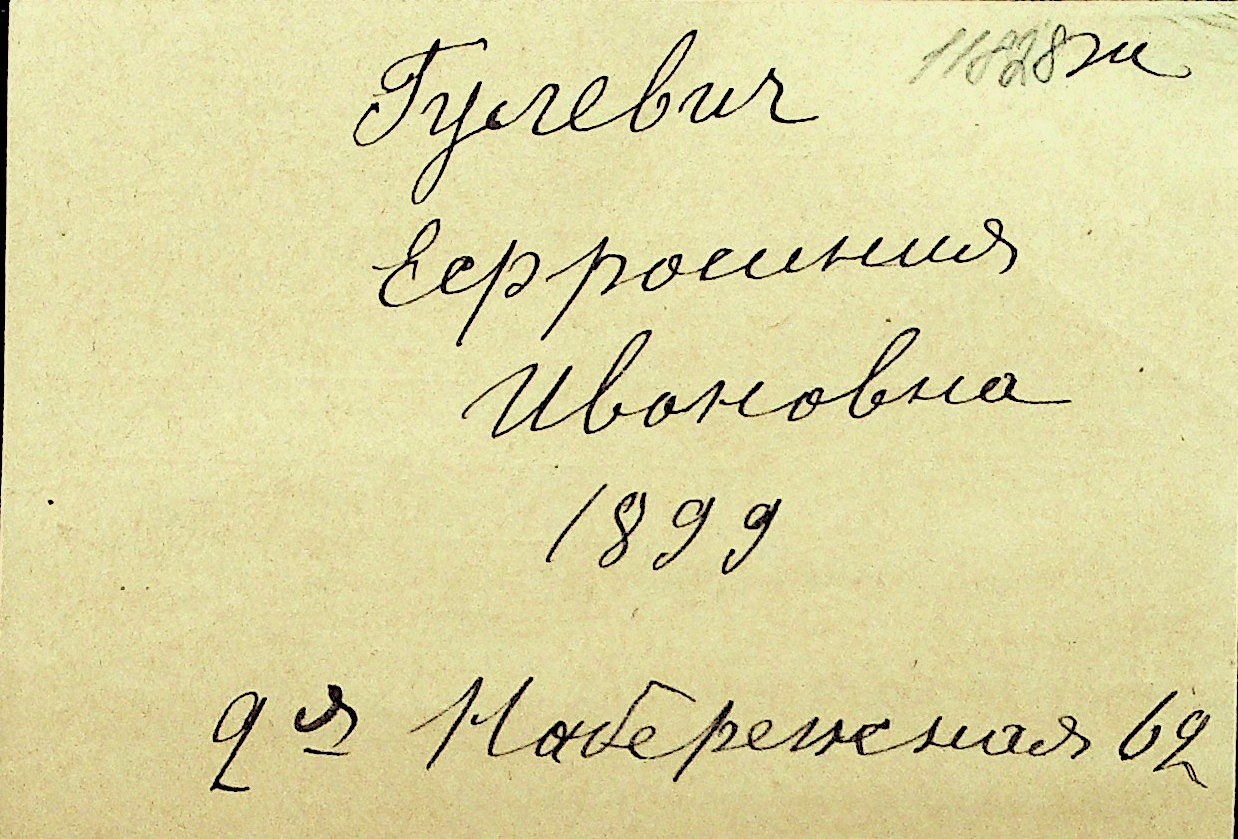 11828ж
Гулевич
Ефросиния
Ивановна
1899
2я Набережная 62